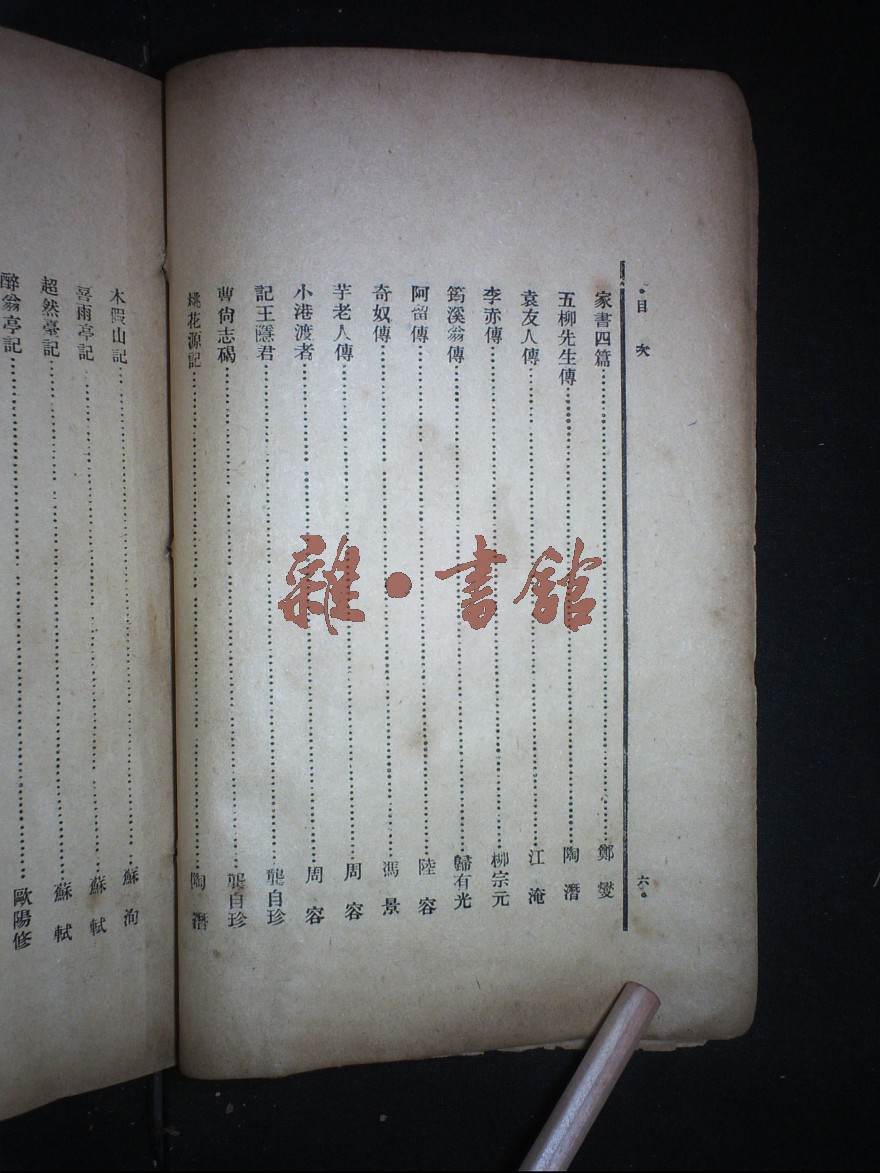 目次
六
家書四篇……鄭燮
五柳先生傳……陶潛
袁友人傳……江淹
李赤傳……柳宗元
筠溪翁傳……歸有光
阿留傳……陸容
奇奴傳……馮景
芋老人傳……周容
小港渡者……周容
記王隱君……龔自珍
曹尙志碣……龔自珍
桃花源記……陶潛
木假山記……蘇洵
喜雨亭記……蘇軾
超然臺記……蘇軾
醉翁亭記……歐陽修
雜·書館